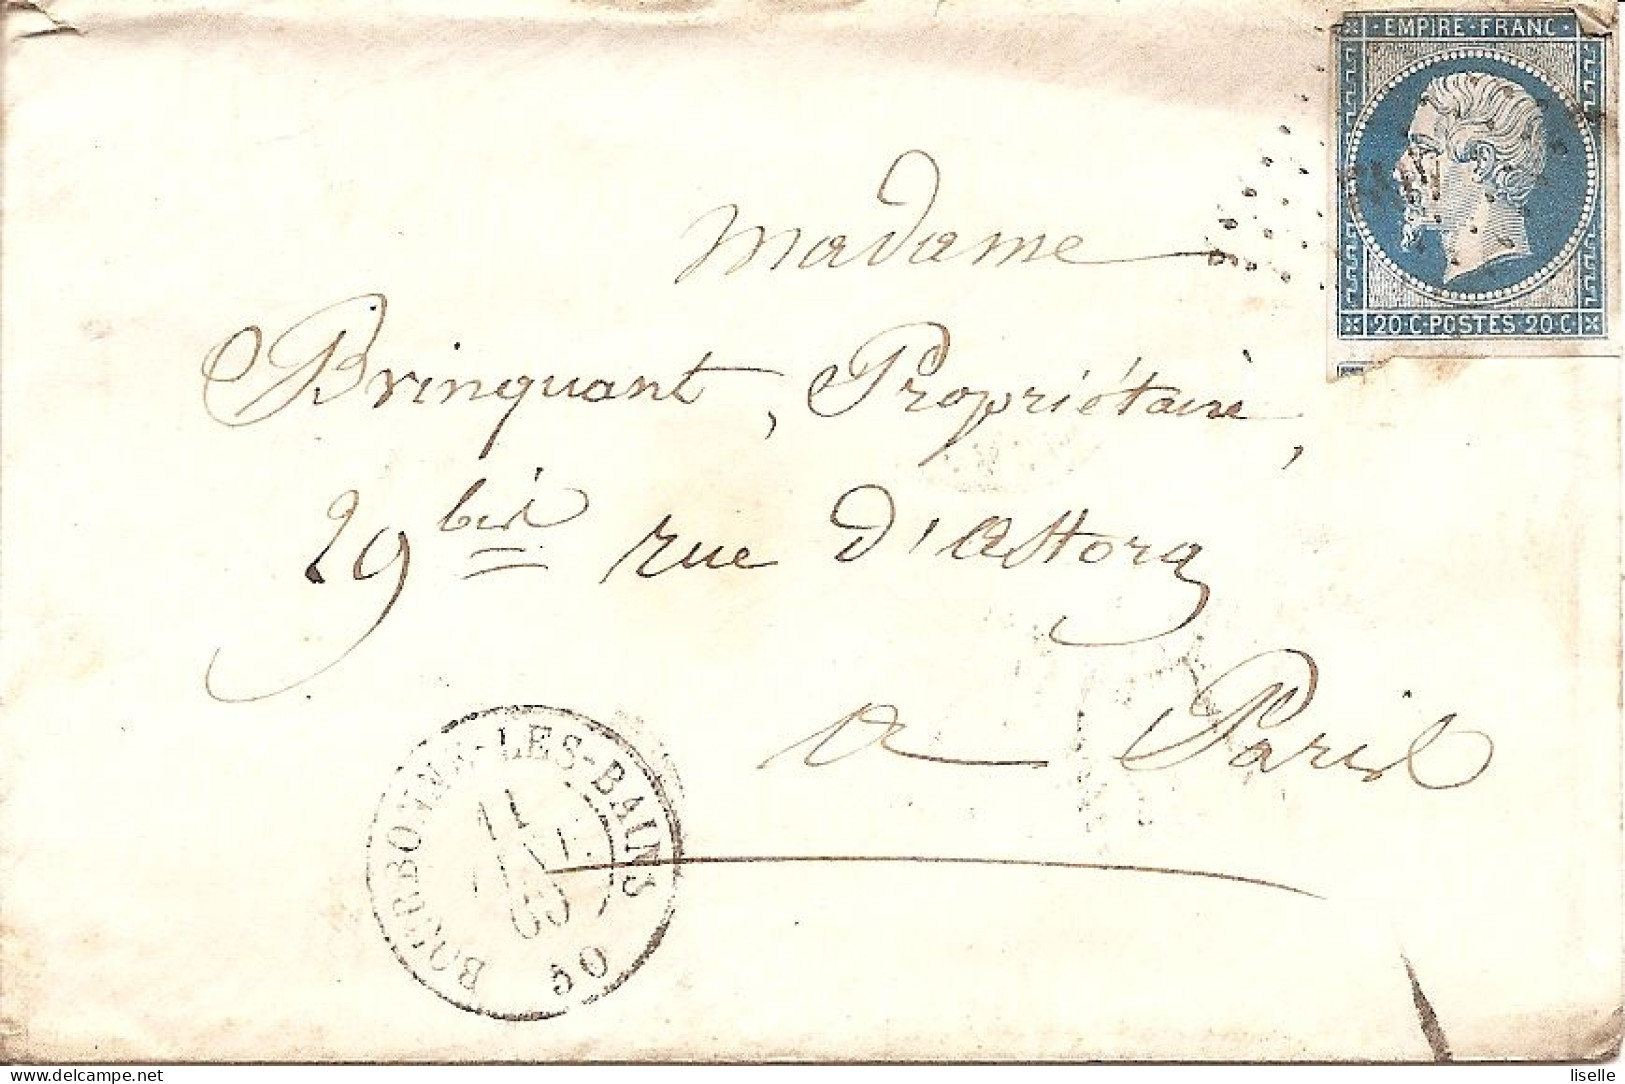 EMPIRE·FRANC·
20·C·POSTES·20·C
Madame
Brinquant, Propriétaire,
29 bis rue d'Astorg
a Paris
BOURBONNE-LES-BAINS
11
60
50
delcampe.net
liselle